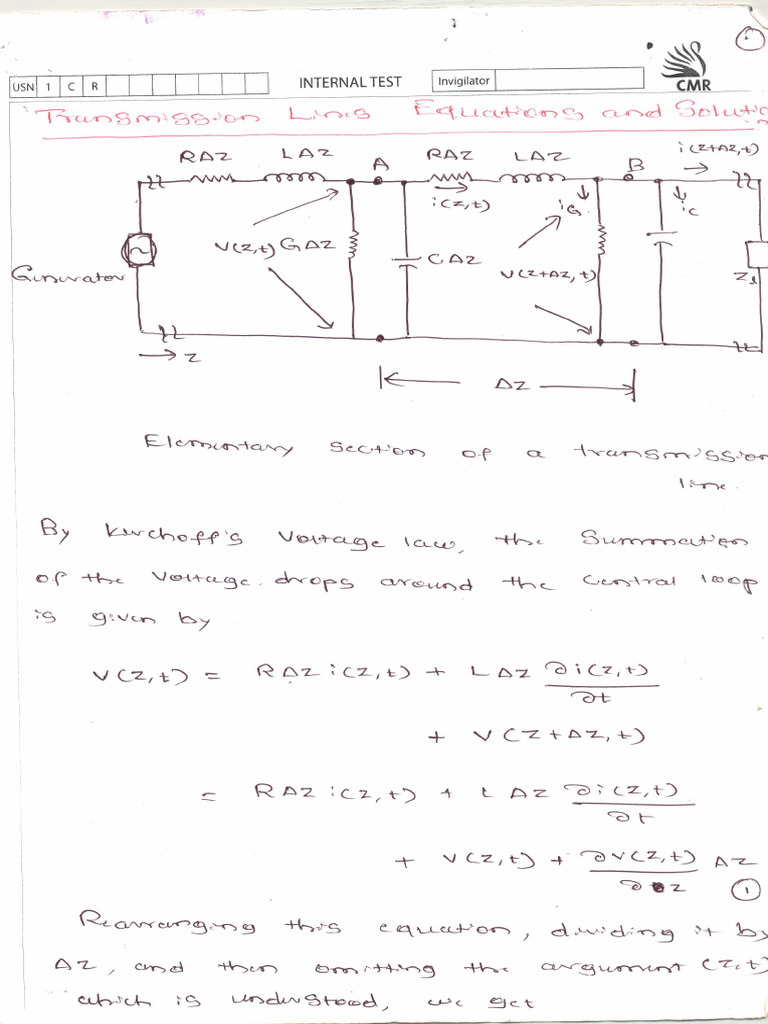 1
USN 1 C R
INTERNAL TEST
Invigilator
CMR
Transmission Line Equations and Solutio
RΔZ LΔZ A RΔZ LΔZ B i(z+Δz,t)
i(z,t) iG ic
V(z,t) GΔZ CΔZ V(z+Δz,t)
Generator Zl
z
ΔZ
Elementary section of a transmission
line.
By Kirchoff's Voltage law, the Summation
of the Voltage drops around the Central loop
is given by
V(z,t) = RΔZ i(z,t) + LΔZ ∂i(z,t)/∂t
+ V(z+Δz,t)
= RΔZ i(z,t) + LΔZ ∂i(z,t)/∂t
+ V(z,t) + ∂V(z,t)/∂z ΔZ
1
Rearranging this equation, dividing it by
ΔZ, and then omitting the argument (z,t)
which is understood, we get